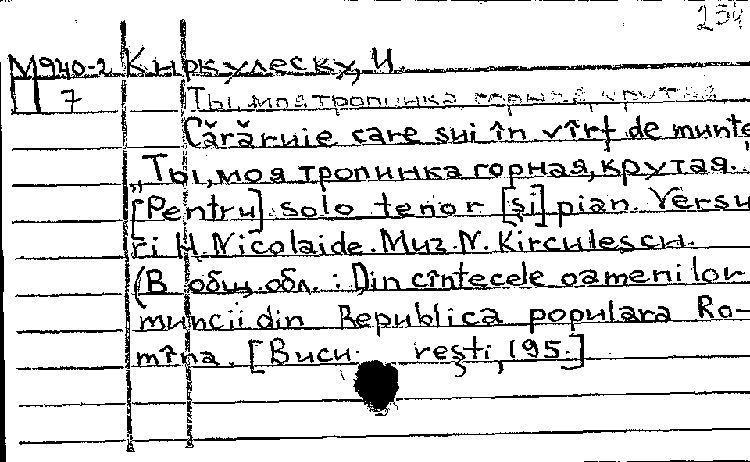 234
М940-2 Киркулеску, И.
7 Ты, моя тропинка горная, крутая
Cărăruie care sui în vîrf de munte
„Ты, моя тропинка горная, крутая..
[Pentru] solo tenor [și] pian. Versu
ri H. Nicolaide. Muz. N. Kirculescu.
(В общ. обл.: Din cîntecele oamenilor
muncii din Republica populara Ro-
mîna. [Bucu rești, 195.]